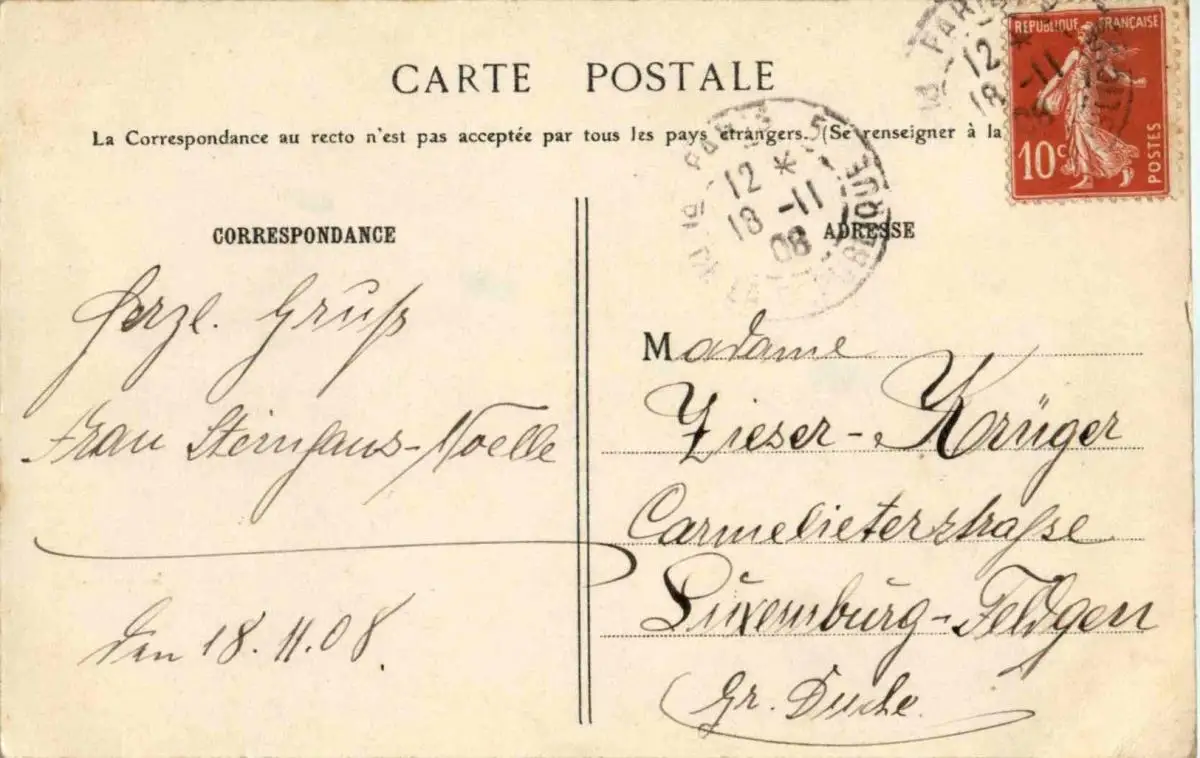 CARTE POSTALE
La Correspondance au recto n'est pas acceptée par tous les pays étrangers. (Se renseigner à la
REPUBLIQUE FRANÇAISE
10c
POSTES
PARIS
12 *
18 -11
08
PARIS
12 *
18 -11
08
CORRESPONDANCE
ADRESSE
Herzl. Gruß
Frau Steinhaus-Noelle
den 18.11.08.
Madame
Zieser-Krüger
Carmelieterstraße
Luxemburg-Feldgen
Gr. Duché